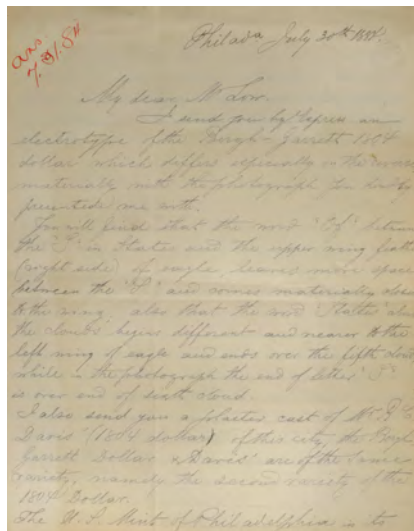 ans.
7.31.84
Philada July 30th 1884.
My dear Mr Low.
I send you by Express an
electrotype of the Bergh-Garrett 1804
dollar which differs especially in the reverse
materially with the photograph you kindly
presented me with.
You will find that the word "Of" between
the "S" in States and the upper wing feather
(right side) of eagle, leaves more space
between the "S" and comes materially closer
to the wing. also that the word "States" above
the clouds begins different and nearer to the
left wing of eagle and ends over the fifth cloud
while in the photograph the end of letter "S"
is over end of sixth cloud.
I also send you a plaster cast of Mr
Davis' (1804 dollar) of this city, the
Garrett Dollar & Davis' are of the same
variety, namely the second variety of the
1804 Dollar.
The U.S. Mint of Philadelphia in its